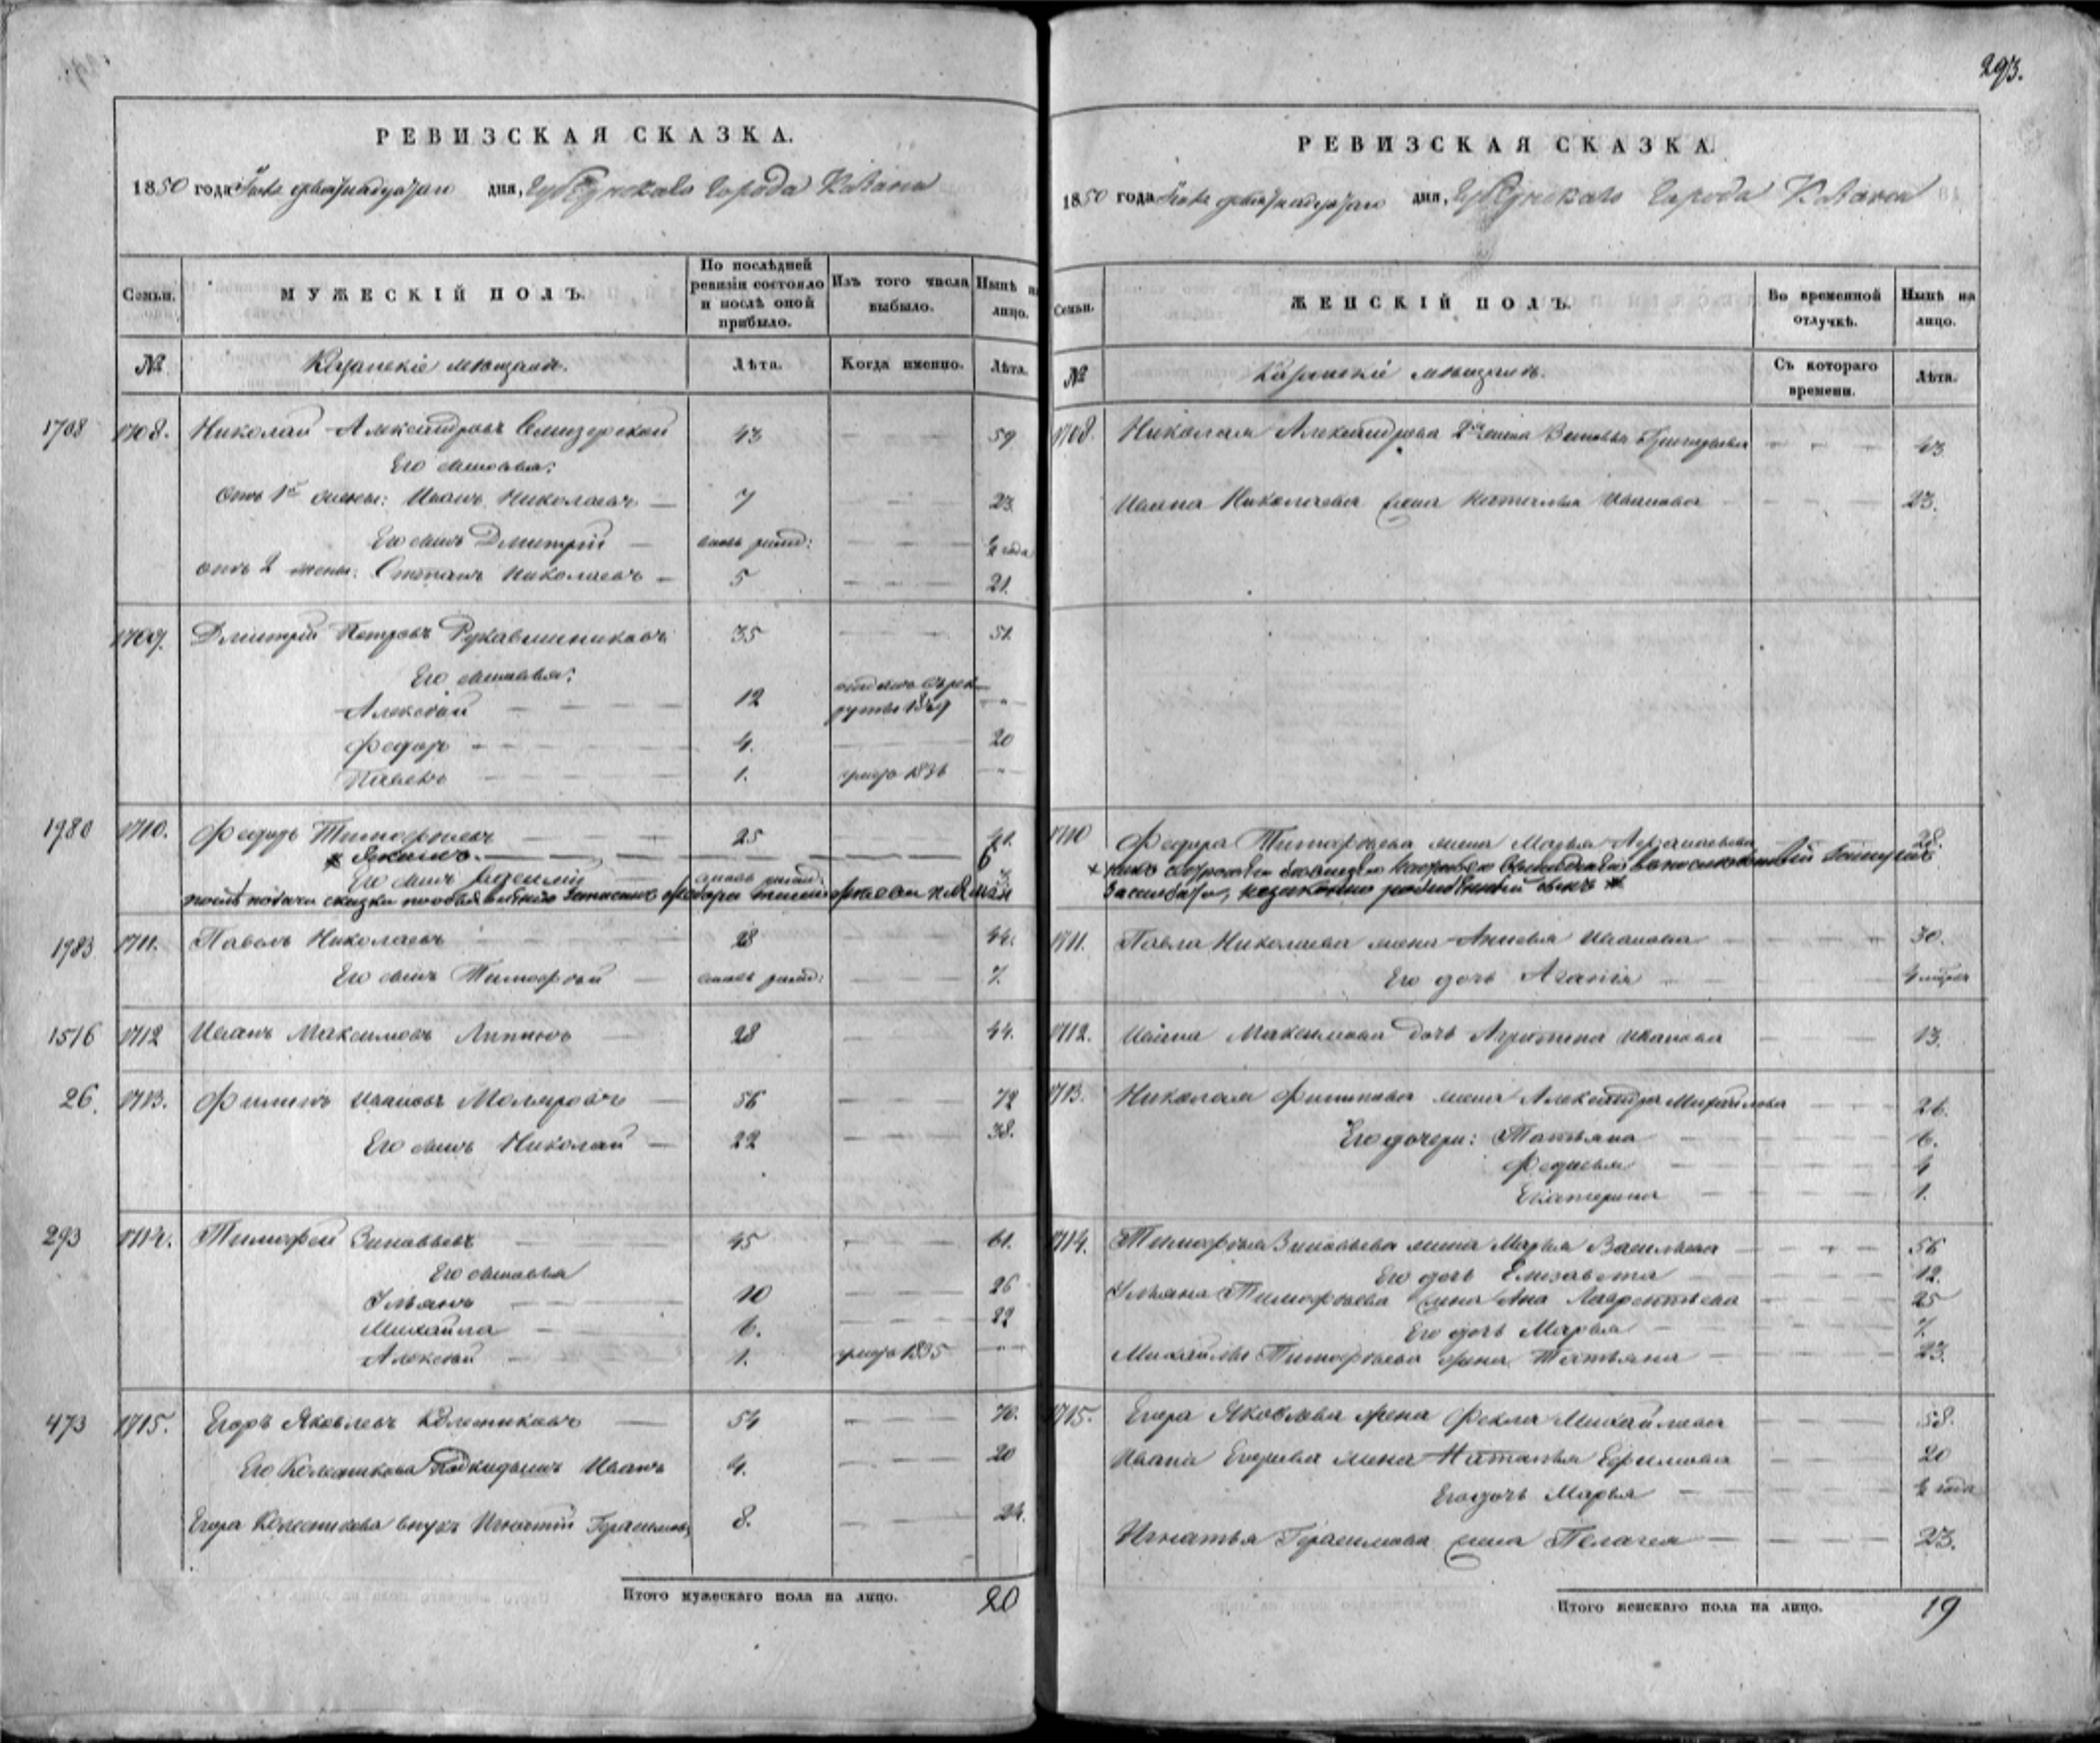 293.
РЕВИЗСКАЯ СКАЗКА.
1850 года дня, Губернскаго Города Казани
Семьи. МУЖЕСКІЙ ПОЛЪ. По послѣдней ревизіи состояло и послѣ оной прибыло. Изъ того числа выбыло. Нынѣ на лицо.
№ Казанскіе мѣщане. Лѣта. Когда именно. Лѣта.
1708 1708. Николай Александровъ 43 59
Его сыновья:
отъ 1й жены: Иванъ Николаевъ 7 23
Его сынъ Дмитрій вновь рожд: ½ года
отъ 2 жены: Степанъ Николаевъ 5 21.
1709. Дмитрій Петровъ Рукавишниковъ 35 51.
Его сыновья:
Алексѣй 12 отданъ въ рекруты 1849
Федоръ 4. 20
Павелъ 1. умеръ 1836
1980 1710. Федоръ Тимофѣевъ 25 41.
Якимъ. 6
Его сынъ вновь рожд:
1983 1711. Павелъ Николаевъ 28 44.
Его сынъ Тимофѣй вновь рожд: 7.
1516 1712 Иванъ Максимовъ Липинъ 28 44.
26. 1713. Филипъ Ивановъ Моляровъ 56 72
Его сынъ Николай 22 38.
293 1714. Тимофей Зиновьевъ 45 61.
Его сыновья
Ульянъ 10 26
Михайла 6. 22
Алексѣй 1. умеръ 1835
473 1715. Егоръ Яковлевъ Колесниковъ 54 70.
Его Колесникова подкидышъ Иванъ 4. 20
Егора Колесникова внукъ Игнатій Герасимовъ 8. 24.
Итого мужескаго пола на лицо. 20
РЕВИЗСКАЯ СКАЗКА.
1850 года дня, Губернскаго Города Казани
Семьи. ЖЕНСКІЙ ПОЛЪ. Во временной отлучкѣ. Нынѣ на лицо.
№ Казанскіе мѣщане. Съ котораго времени. Лѣта.
1708. Николая Александрова 2я жена Григорьева 43
Ивана Николаева жена Наталья Иванова 23.
1710 Федора Тимофѣева жена Марья 28.
1711. Павла Николаева жена Анисья Иванова 30.
Его дочь Агапія
1712. Ивана Максимова дочь Агрипина Иванова 13.
1713. Николая Филиппова жена Александра Михайлова 26.
Его дочери: Татьяна 6.
Федосья 4
Екатерина 1.
1714. Тимофѣя Зиновьева жена Марья Васильева 56
Его дочь Елизавета 12.
Ульяна Тимофѣева жена Ана Лаврентьева 25
Его дочь Марья 7.
Михайлы Тимофѣева жена Татьяна 23.
1715. Егора Яковлева жена Фекла Михайлова 58.
Ивана Егорова жена Наталья Ефимова 20
Его дочь Марья ½ года
Игнатья Герасимова жена Пелагея 23.
Итого женскаго пола на лицо. 19